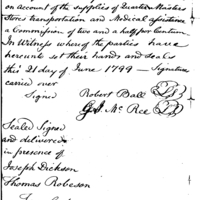 on account of the supplies of Quarter Masters
Stores transportation and Medical assistance
a Commission of two and a half per Centum
In Witness whereof the parties have
hereunto set their hands and seals
this 21 day of June 1799 — Signature
carried over
Signed Robert Ball
G. J. McRee
Sealed Signed
and delivered
in presence of
Joseph Dickson
Thomas Robeson